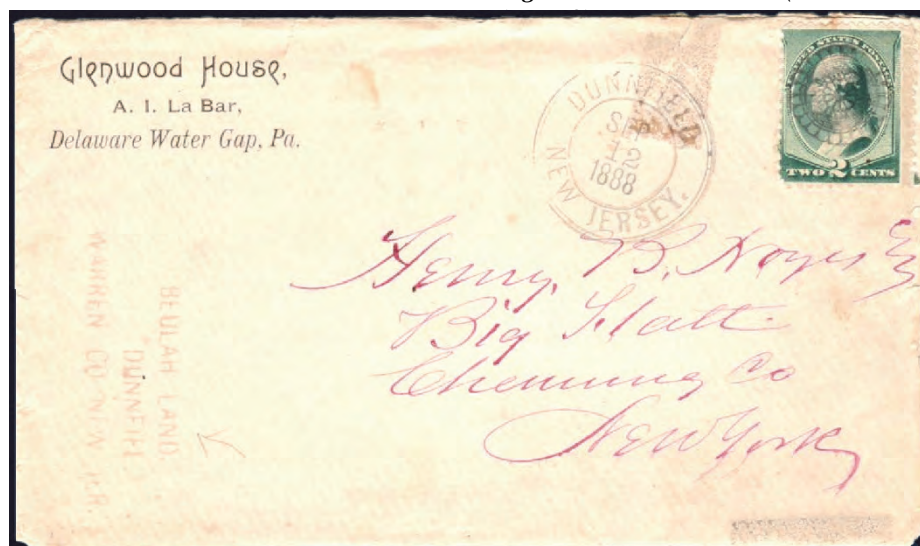 Glenwood House,
A. I. La Bar,
Delaware Water Gap, Pa.
DUNNFIELD
SEP
12
1888
NEW JERSEY.
UNITED STATES POSTAGE
TWO 2 CENTS
Henry B. Noyes Esq
Big Flatt
Chemung Co
New York
BEULAH LAND.
DUNNFIELD
WARREN CO